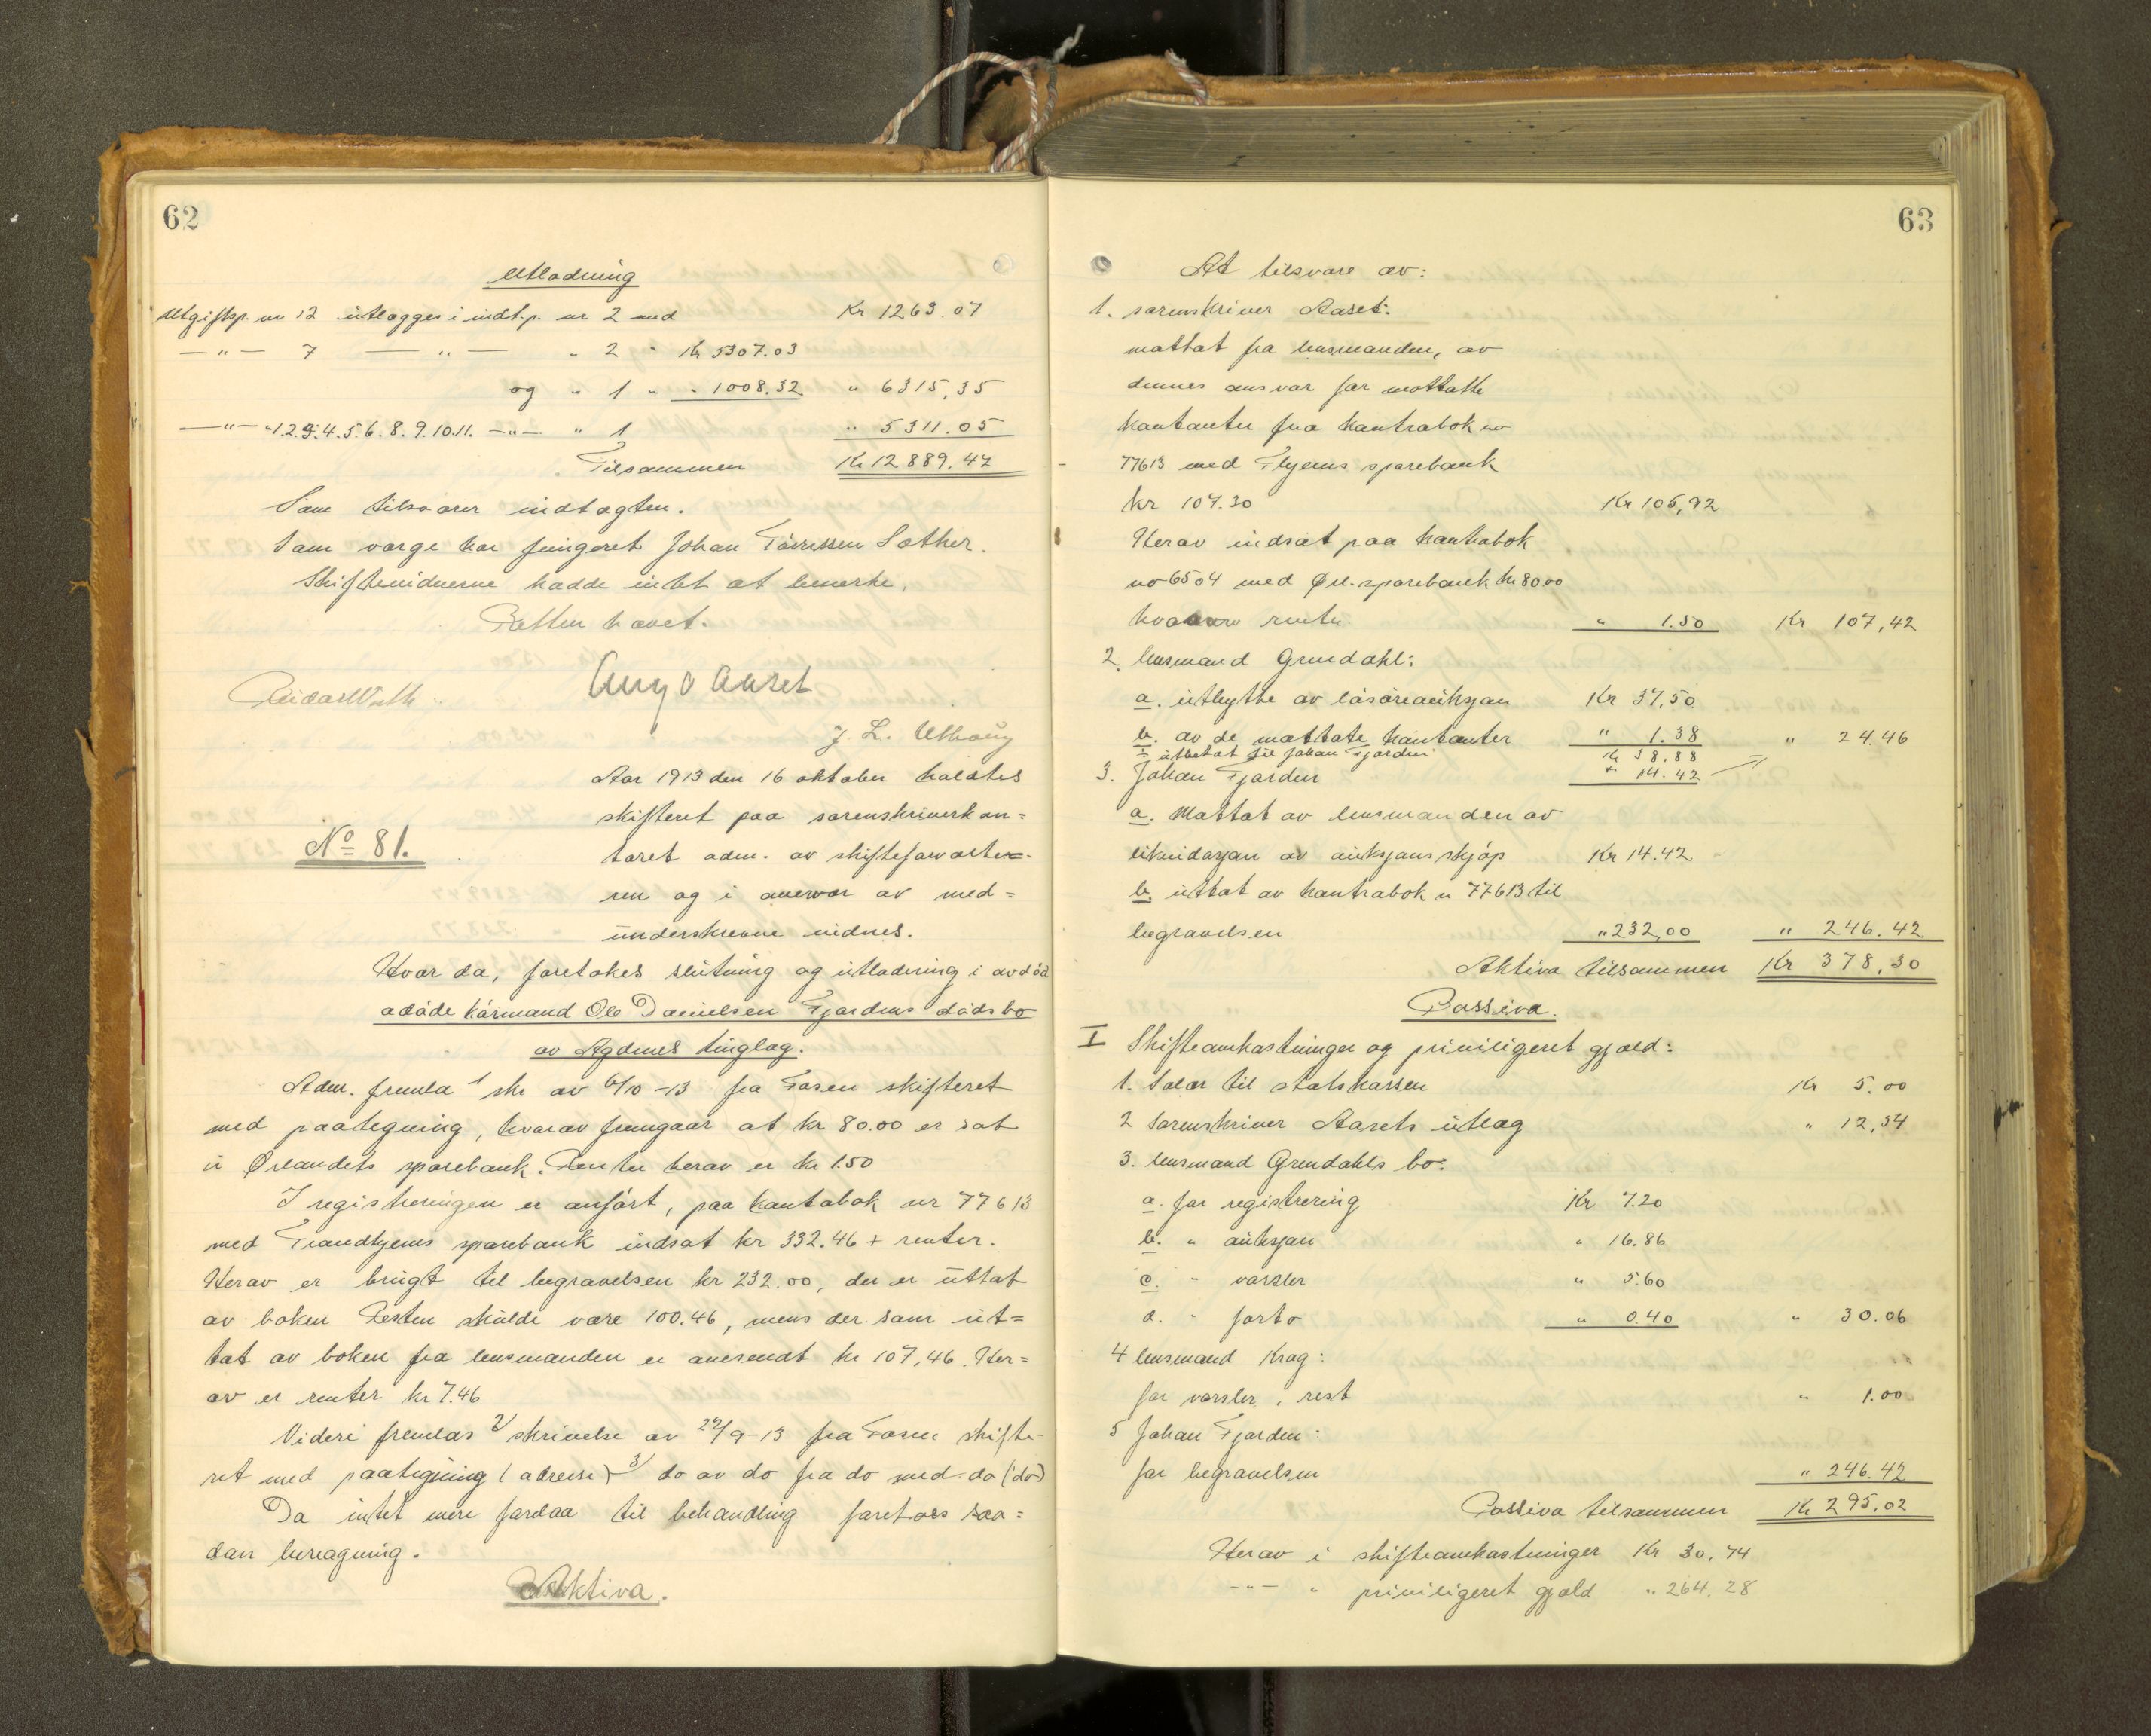 62
Utlodning
Utgiftsp. nr 12 utlægges i indt.p. nr 2 med Kr 1263.07
—"— 7 —"— " 2 " Kr 5307.03
og " 1 " " 1008.32 " 6315,35
—"— 1.2.3.4.5.6.8.9.10.11. —"— " 1 " 5311.05
Tilsammen Kr 12889.47
Som tilsvarer indtægten.
Som værge har fungeret Johan Sæther.
Skiftevidnerne hadde intet at bemerke.
Retten hævet.
Aaset
J. L. Uthaug
Aar 1913 den 16 oktober holdtes
No 81.
skifteret paa sorenskriverkon=
toret adm. av skifteforvalte-
ren og i overvær av med=
underskrevne vidnes.
Hvor da, foretokes slutning og utlodning i avdød
adøde kårmand Ole Danielsen Fjordens dødsbo
av Agdenes tinglag.
Adm. fremla 1 skr av 6/10-13 fra Fosen skifteret
med paategning, hvorav fremgaar at kr 80.00 er sat
i Ørlandets sparebank. Renter herav er kr 1.50
I registreringen er anført, paa kontobok nr 77613
med Trondhjems sparebank indsat kr 332.46 + renter.
Herav er brugt til begravelsen kr 232.00, der er uttat
av boken Resten skulde være 100.46, mens der som ut=
tat av boken fra lensmanden er anvendt kr 107,46. Her=
av er renter kr 7.46
Videre fremlas 2/ skrivelse av 22/9-13 fra Fosen skifte-
ret med paategning (adresse) 3/ do av do fra do med do (do)
Da intet mere forelaa til behandling foretoes saa=
dan beregning.
Aktiva.
63
At tilsvare av:
1. sorenskriver Aaset:
mottat fra lensmanden, av
dennes ansvar for mottatte
kontanter fra kontrabok no
77613 med Thjems sparebank
kr 107.30 Kr 105,92
Herav indsat paa kontrabok
no 6504 med Ørl. sparebank kr 80.00
hvorav renter " 1.50 Kr 107,42
2. lensmand Grendahl:
a. utbytte av løsøreauksjon Kr 37,50
b. av de mottate kontanter " 1.38 " 24.46
÷ utbetat til Johan Fjorden Kr 38.88
÷ 14.42
3. Johan Fjorden
a. Mottat av lensmanden av
likvidasjon av auksjonskjøp Kr 14.42
b. uttat av kontrabok n 77613 til
begravelsen " 232,00 " 246.42
Aktiva tilsammen Kr 378,30
Passiva.
I Skifteomkostninger og priviligeret gjæld:
1. Salær til statskassen Kr 5.00
2 sorenskriver Aasets utlæg " 12,54
3. lensmand Grendahls bo:
a. for registrering Kr 7.20
b. " auksjon " 16.86
c. " varsler " 5.60
d. " porto " 0.40 " 30.06
4 lensmand Krag:
for varsler, rest " 1.00
5 Johan Fjorden:
for begravelsen " 246.42
Passiva tilsammen Kr 295,02
Herav i skifteomkostninger Kr 30,74
—"— " priviligeret gjæld " 264.28